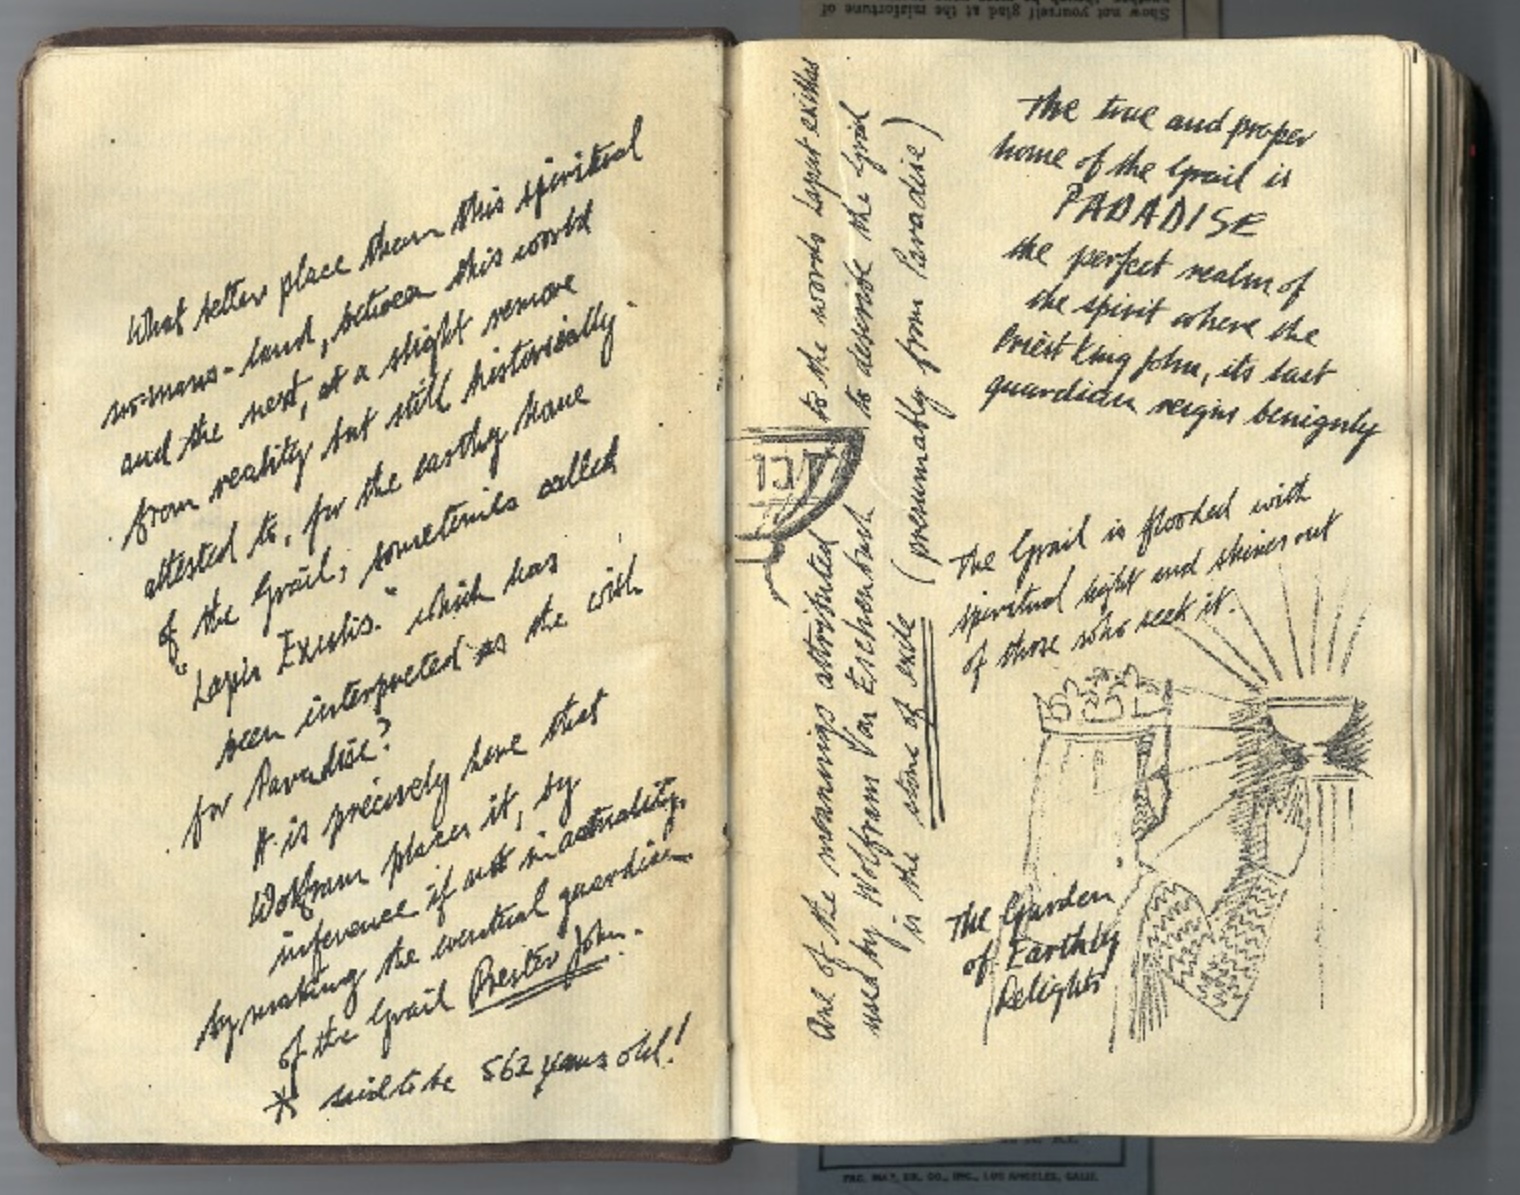 What better place than this spiritual
no-mans-land, between this world
and the next, at a slight remove
from reality but still historically
attested to, for the earthly home
of the Grail, sometimes called
"Lapis Exestis." which has
been interpreted as the wish
for Paradise?
It is precisely here that
Wolfram places it, by
inference if not in actuality,
by making the eventual guardian
of the Grail Prester John.
* said to be 562 years old!
One of the meanings attributed to the words Lapsit exillas
used by Wolfram Von Eschenbach to describe the Grail
is the stone of exile (presumably from Paradise)
The true and proper
home of the Grail is
PARADISE
the perfect realm of
the spirit where the
Priest King John, its last
guardian reigns benignly
The Grail is flooded with
spiritual light and shines out
of those who seek it.
The Garden
of Earthly
Delights
Show not yourself glad at the misfortune of